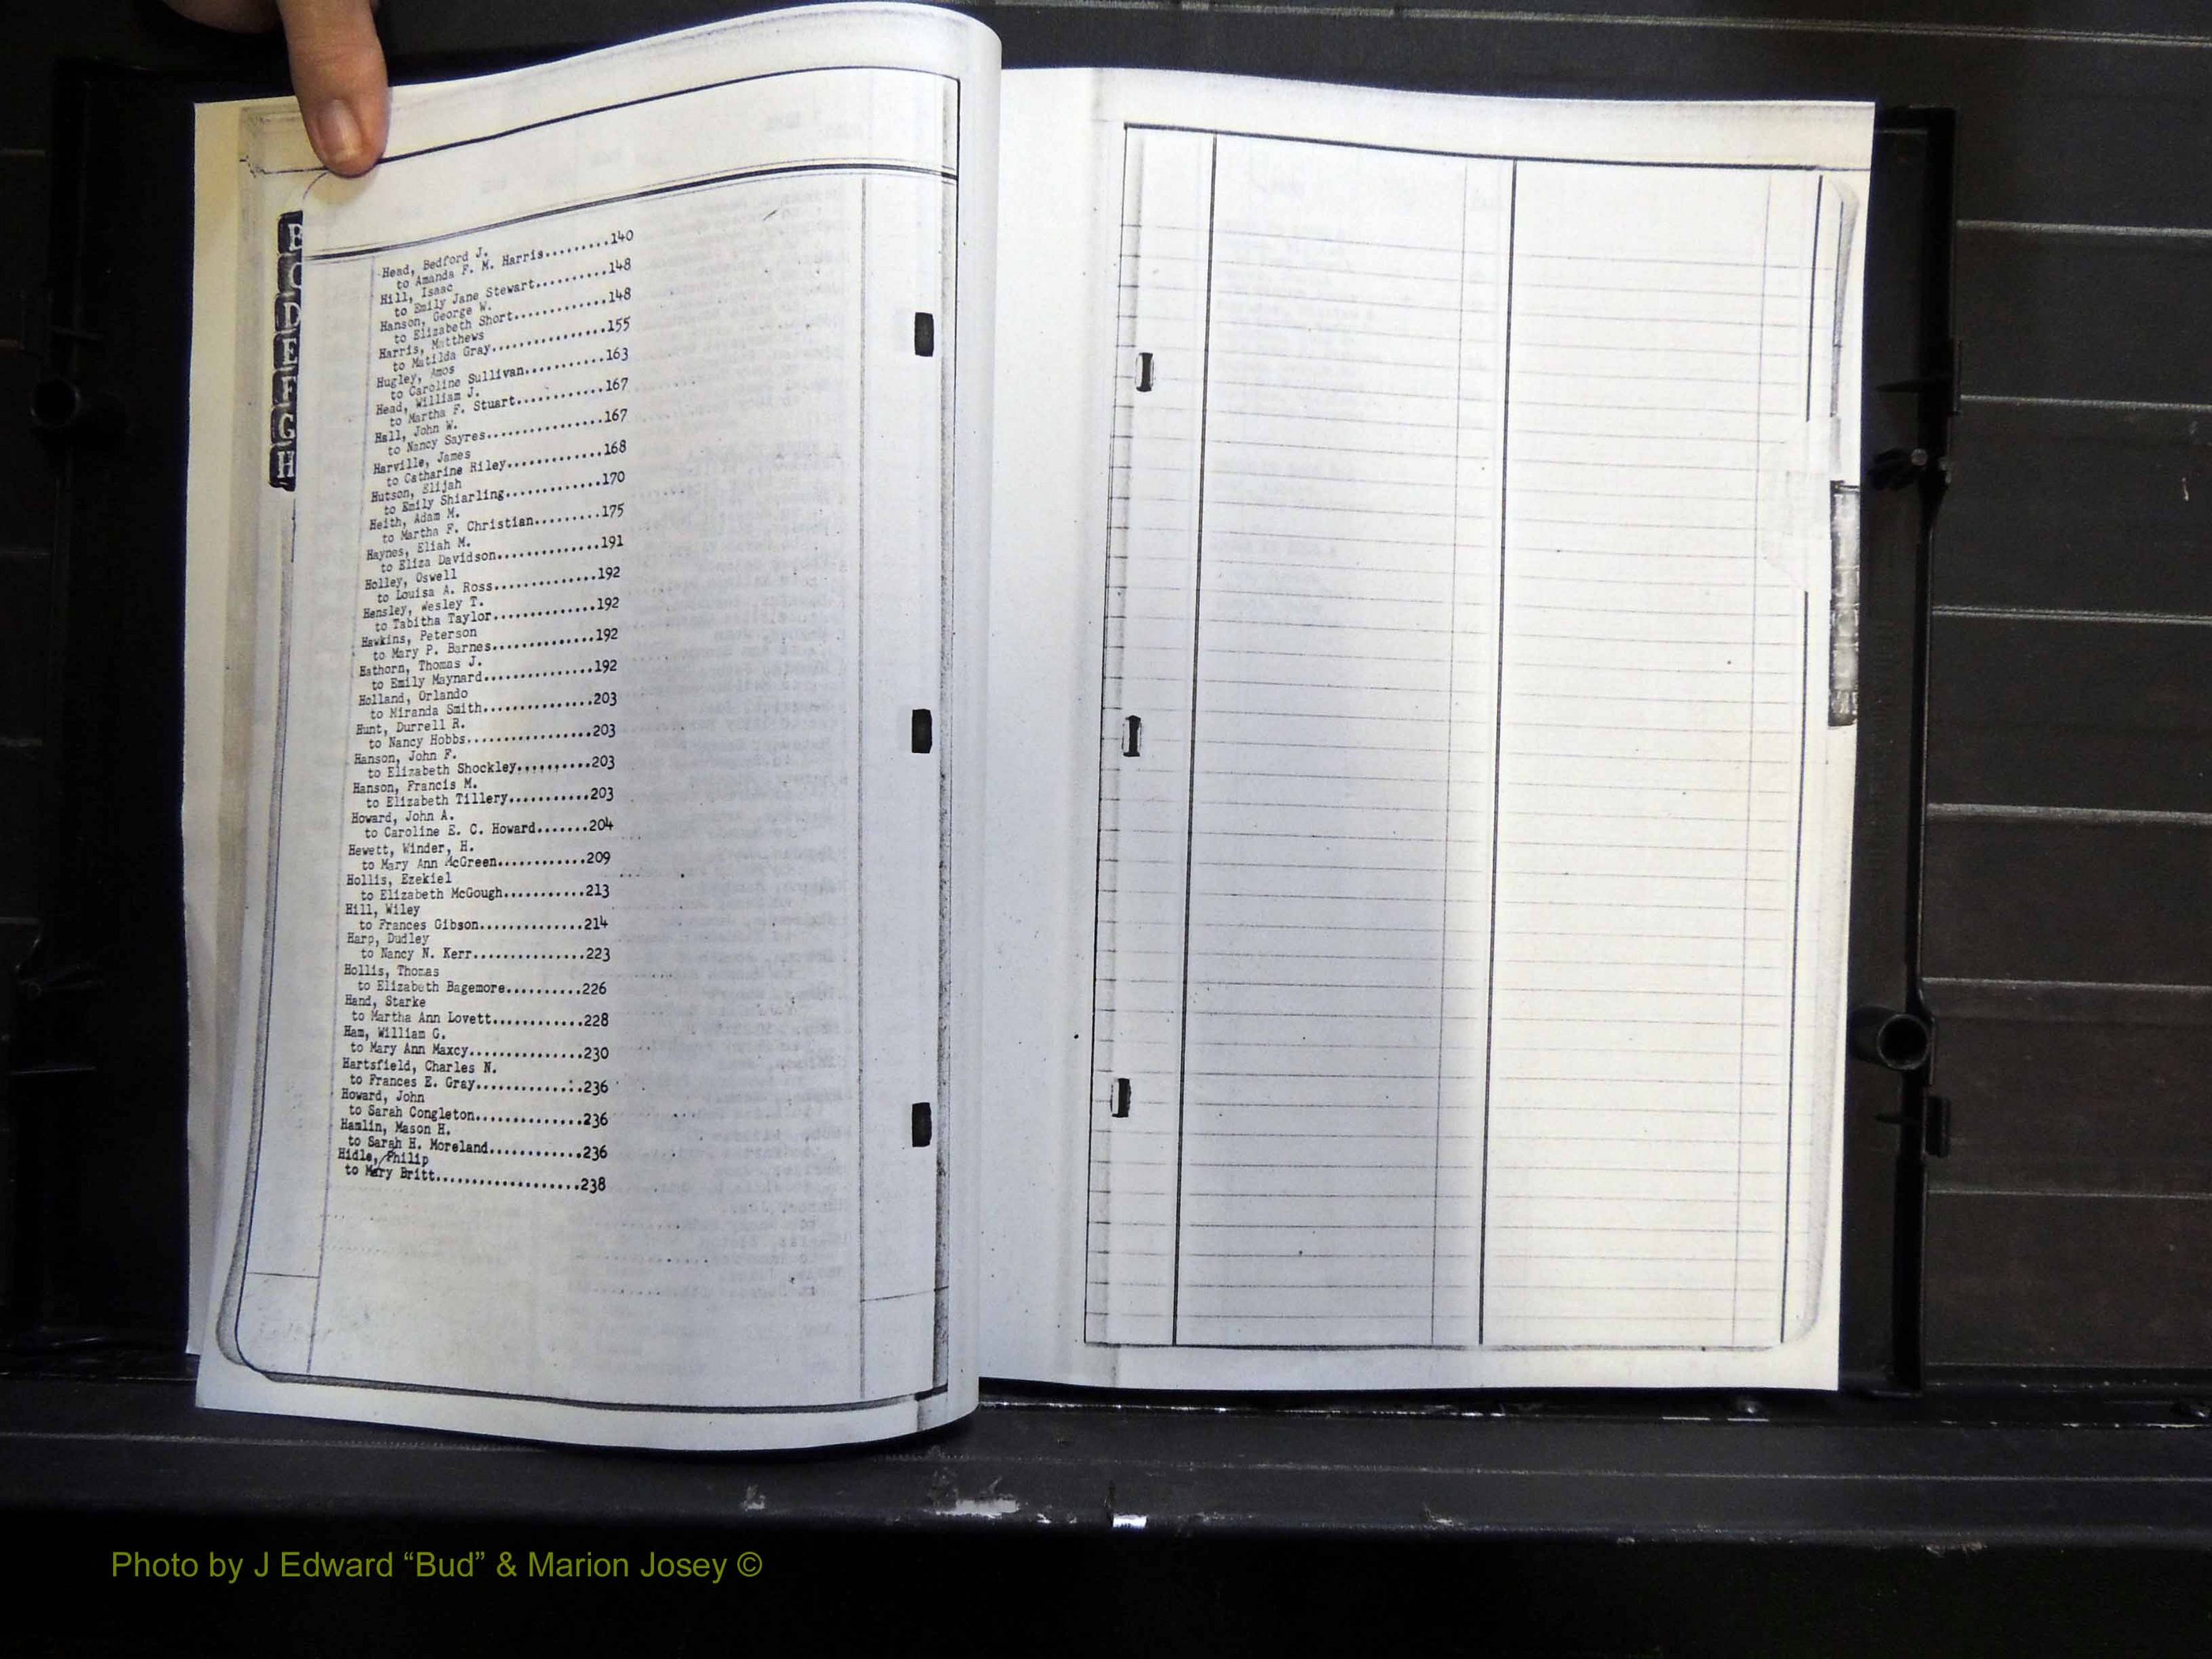 B
C
D
E
F
G
H
Head, Bedford J.
to Amanda F. M. Harris.........140
Hill, Isaac
to Emily Jane Stewart.........148
Hanson, George W.
to Elizabeth Short............148
Harris, Matthews
to Matilda Gray...............155
Hugley, Amos
to Caroline Sullivan..........163
Head, William J.
to Martha F. Stuart...........167
Hall, John W.
to Nancy Sayres...............167
Harville, James
to Catharine Riley............168
Hutson, Elijah
to Emily Shiarling............170
Heith, Adam M.
to Martha F. Christian.........175
Haynes, Eliah M.
to Eliza Davidson.............191
Holley, Oswell
to Louisa A. Ross.............192
Hensley, Wesley T.
to Tabitha Taylor.............192
Hawkins, Peterson
to Mary P. Barnes.............192
Hathorn, Thomas J.
to Emily Maynard..............192
Holland, Orlando
to Miranda Smith..............203
Hunt, Durrell R.
to Nancy Hobbs................203
Hanson, John F.
to Elizabeth Shockley..........203
Hanson, Francis M.
to Elizabeth Tillery...........203
Howard, John A.
to Caroline E. C. Howard.......204
Hewett, Winder, H.
to Mary Ann McGreen............209
Hollis, Ezekiel
to Elizabeth McGough...........213
Hill, Wiley
to Frances Gibson..............214
Harp, Dudley
to Nancy N. Kerr...............223
Hollis, Thomas
to Elizabeth Bagemore..........226
Hand, Starke
to Martha Ann Lovett............228
Ham, William G.
to Mary Ann Maxcy...............230
Hartsfield, Charles N.
to Frances E. Gray..............236
Howard, John
to Sarah Congleton..............236
Hamlin, Mason H.
to Sarah H. Moreland............236
Hidle, Philip
to Mary Britt...................238
Photo by J Edward “Bud” & Marion Josey ©